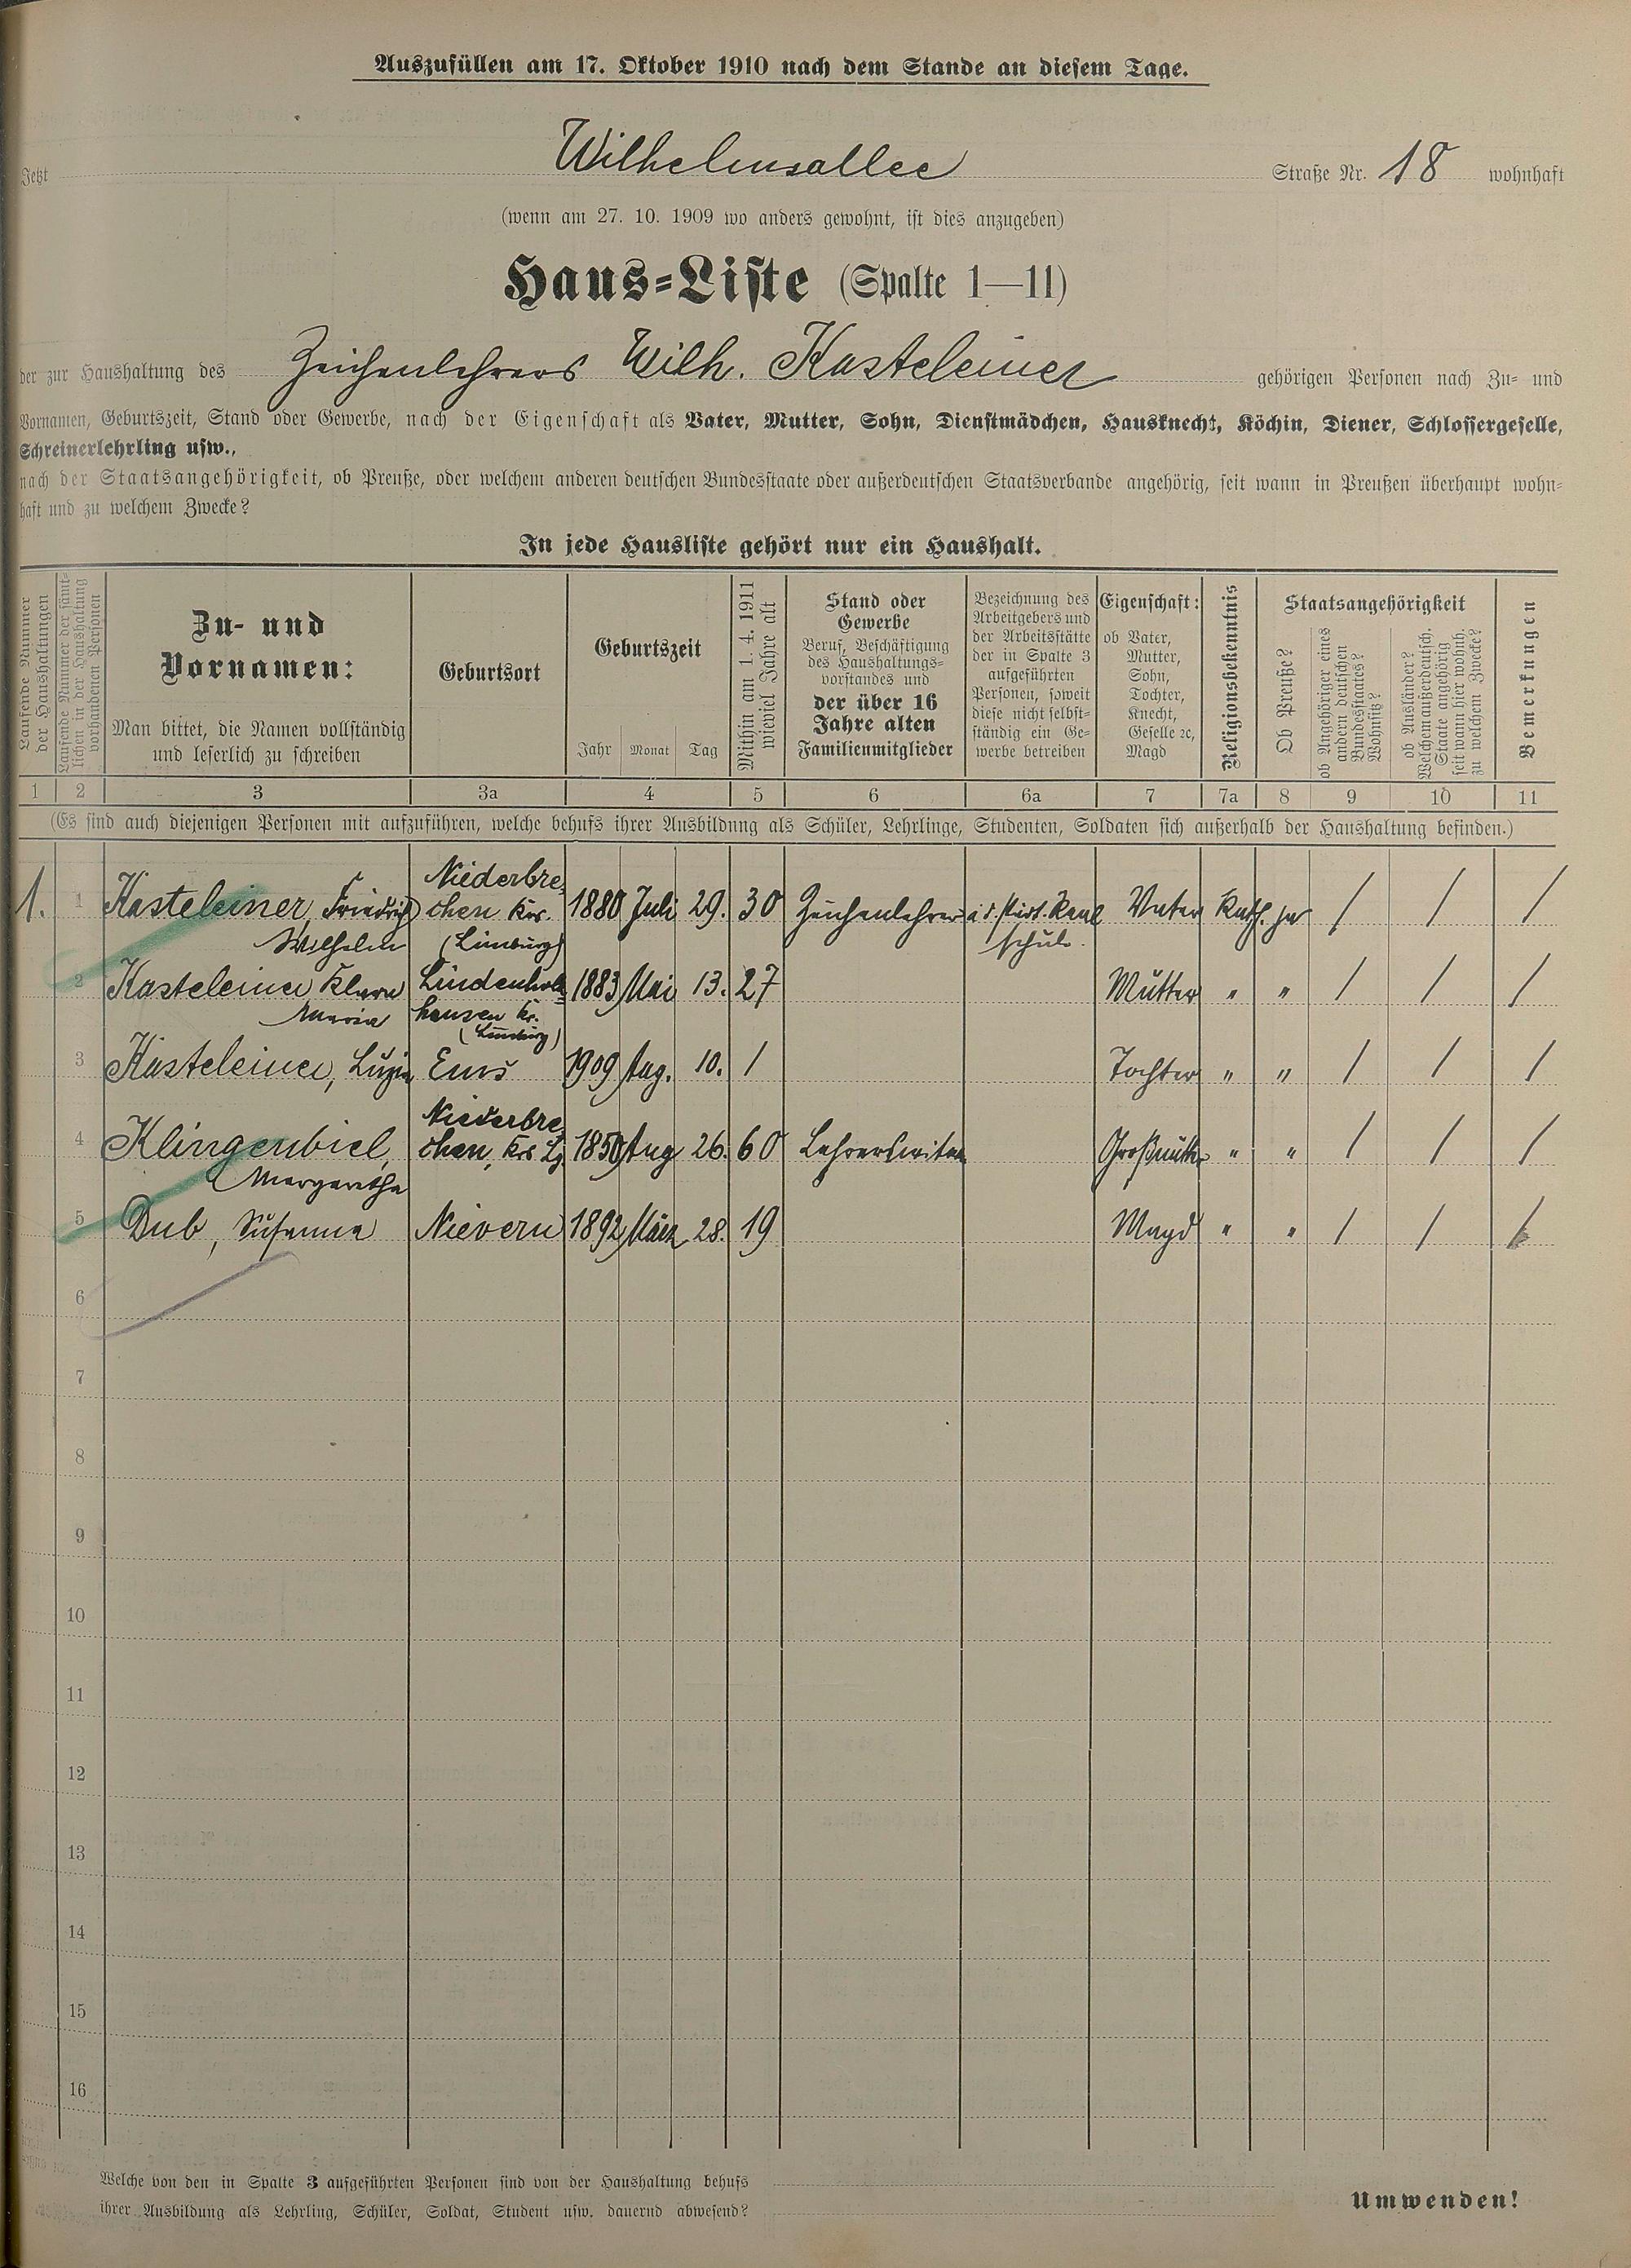 Auszufüllen am 17. Oktober 1910 nach dem Stande an diesem Tage.
Jetzt Wilhelmsallee Straße Nr. 18 wohnhaft
(wenn am 27. 10. 1909 wo anders gewohnt, ist dies anzugeben)
Haus-Liste (Spalte 1—11)
der zur Haushaltung des Zeichenlehrers Wilh. Kasteleiner gehörigen Personen nach Zu- und
Vornamen, Geburtszeit, Stand oder Gewerbe, nach der Eigenschaft als Vater, Mutter, Sohn, Dienstmädchen, Hausknecht, Köchin, Diener, Schlossergeselle,
Schreinerlehrling usw.,
nach der Staatsangehörigkeit, ob Preuße, oder welchem anderen deutschen Bundesstaate oder außerdeutschen Staatsverbande angehörig, seit wann in Preußen überhaupt wohn-
haft und zu welchem Zwecke?
In jede Hausliste gehört nur ein Haushalt.
Laufende Nummer
der Haushaltungen
Laufende Nummer der sämt-
lichen in der Haushaltung
vorhandenen Personen
Zu- und
Vornamen:
Man bittet, die Namen vollständig
und leserlich zu schreiben
Geburtsort
Geburtszeit
Jahr Monat Tag
Mithin am 1. 4. 1911
wieviel Jahre alt
Stand oder
Gewerbe
Beruf, Beschäftigung
des Haushaltungs-
vorstandes und
der über 16
Jahre alten
Familienmitglieder
Bezeichnung des
Arbeitgebers und
der Arbeitsstätte
der in Spalte 3
aufgeführten
Personen, soweit
diese nicht selbst-
ständig ein Ge-
werbe betreiben
Eigenschaft:
ob Vater,
Mutter,
Sohn,
Tochter,
Knecht,
Geselle ec,
Magd
Religionsbekenntnis
Staatsangehörigkeit
Ob Preuße?
ob Angehöriger eines
andern deutschen
Bundesstaates?
Wohnsitz?
ob Ausländer?
Welchem außerdeutsch.
Staate angehörig
seit wann hier wohnh.
zu welchem Zwecke?
Bemerkungen
1 2 3 3a 4 5 6 6a 7 7a 8 9 10 11
(Es sind auch diejenigen Personen mit aufzuführen, welche behufs ihrer Ausbildung als Schüler, Lehrlinge, Studenten, Soldaten sich außerhalb der Haushaltung befinden.)
Niederbre-
1. 1 Kasteleiner, Friedrich chen Krs. 1880 Juli 29. 30 Zeichenlehrer Vater Kath. ja / / /
Wilhelm (Limburg) schule.
2 Kasteleiner Klara Lindenholz- 1883 Mai 13. 27 Mutter " " / / /
Maria hausen Kr.
(Limburg)
3 Kasteleiner, Luzia Ems 1909 Aug. 10. 1 Tochter " " / / /
Niederbre
4 Klingenbiel, chen, Krs Lg. 1850 Aug 26. 60 Lehrerswitwe Großmutter " " / / /
Margaretha
5 Dub, Susanna Nievern 1892 März 28. 19 Magd " " / / /
6
7
8
9
10
11
12
13
14
15
16
Welche von den in Spalte 3 aufgeführten Personen sind von der Haushaltung behufs
ihrer Ausbildung als Lehrling, Schüler, Soldat, Student usw. dauernd abwesend?
Umwenden!